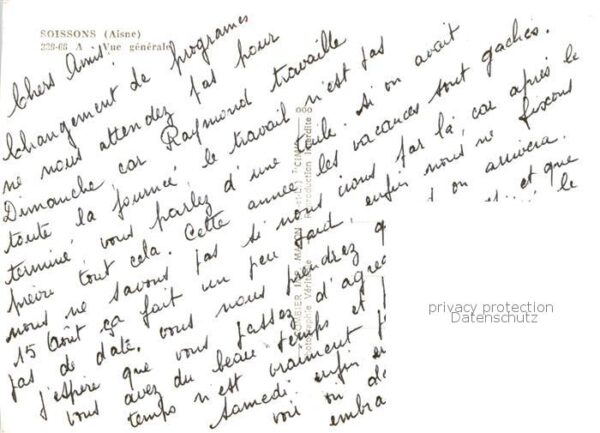 SOISSONS (Aisne)
239-66 A - Vue générale
Chers Amis,
Changement de programes
ne nous attendez pas pour
Dimanche car Raymond travaille
toute la journée le travail n'est pas
terminé vous parlez d'une tuile. Si on avait
prévu tout cela. Cette année les vacances sont gachés.
nous ne savons pas si nous irons par là, car après le
15 Août ça fait un peu tard, enfin nous ne fixons
pas de date. vous nous prendrez q on arrivera.
j'espère que vous passez d'agré et que
vous avez du beau temps et le
temps n'est vraiment
Samedi enfin
voir on
embra
COMBIER IMP. MACON
Photographie Véritable - Reproduction interdite
privacy protection
Datenschutz